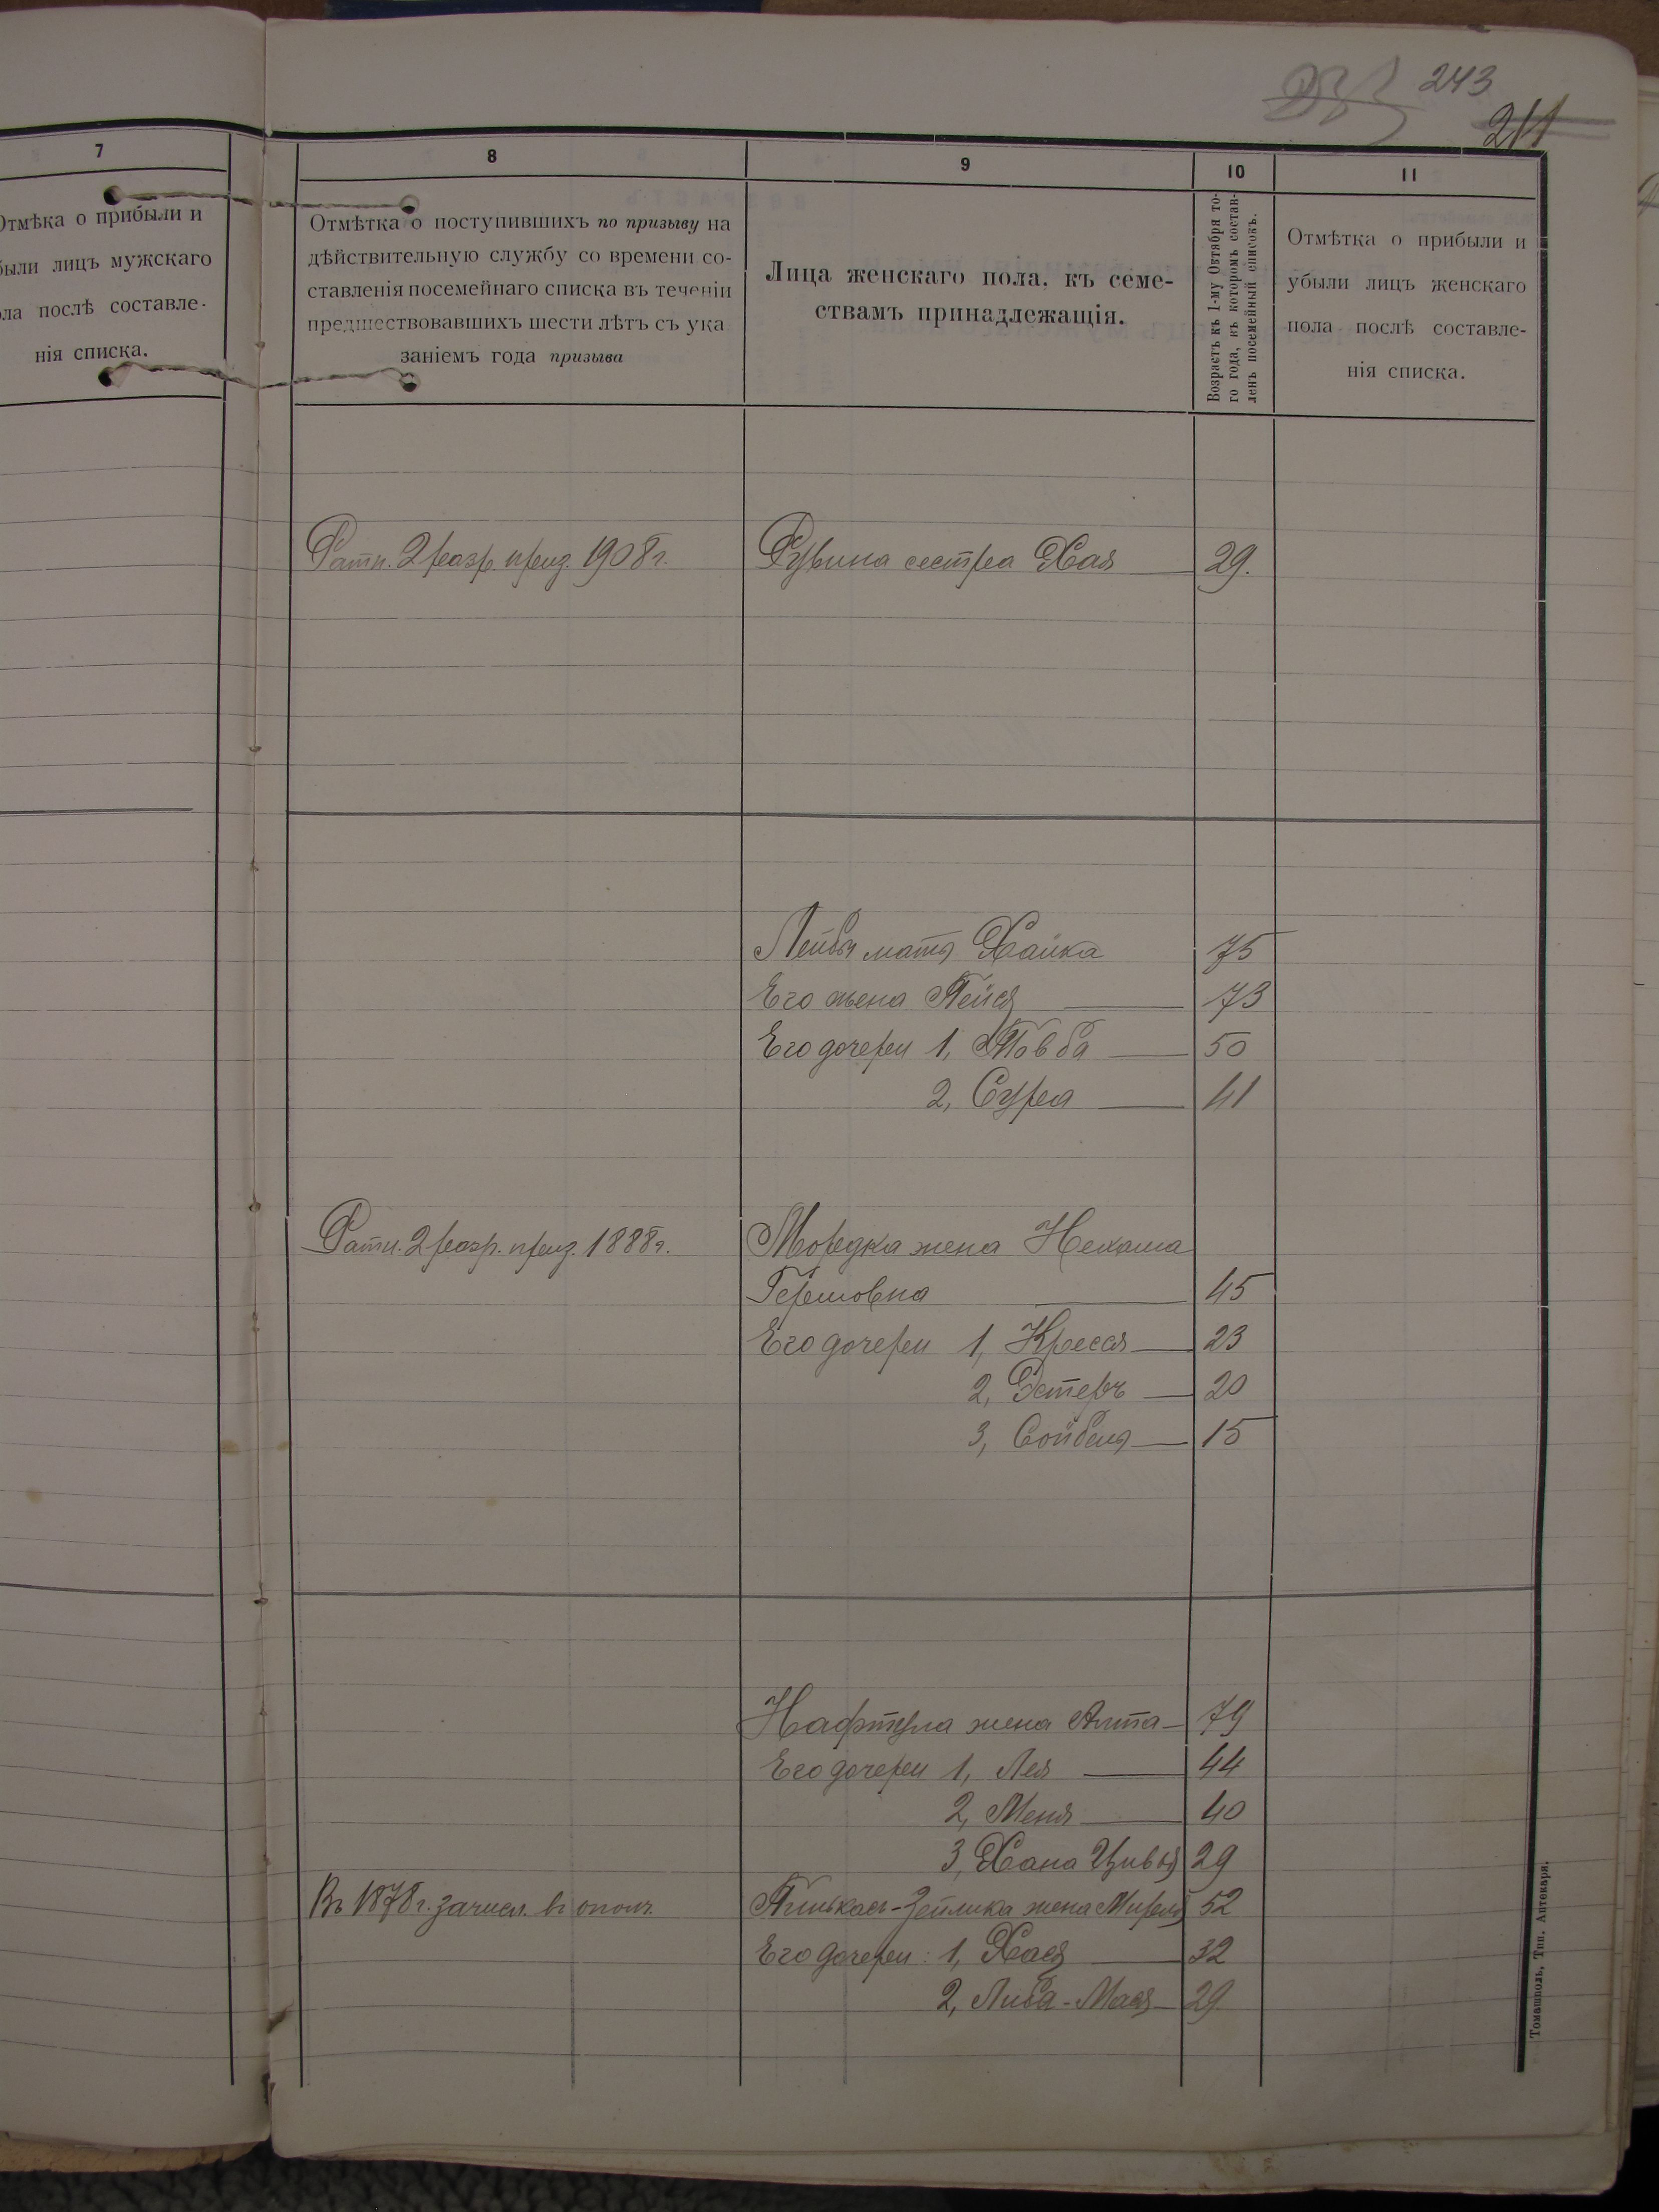 243
211
7
8
9
10
11
Отмѣка о прибыли и
были лицъ мужскаго
ола послѣ составле-
нія списка.
Отмѣтка о поступившихъ по призыву на
дѣйствительную службу со времени со-
ставленія посемейнаго списка въ теченіи
предшествовавшихъ шести лѣтъ съ ука
заніемъ года призыва
Лица женскаго пола, къ семе-
ствамъ принадлежащія.
Возрастъ къ 1-му Октября то-
го года, къ которомъ состав-
ленъ посемейный списокъ.
Отмѣтка о прибыли и
убыли лицъ женскаго
пола послѣ составле-
нія списка.
Ратн. 2 разр. приз. 1908 г.
Рувина сестра Хая 29.
Лейбы мать Хайка 75
Его жена Пейся 73
Его дочери 1, Товба 50
2, Сура 41
Ратн. 2 разр. приз. 1888 г.
Мордка жена Нехама
Гершовна 45
Его дочери 1, Крейся 23
2, Эстеръ 20
3, Сойбеля 15
Нафтула жена Алта 79
Его дочери 1, Лея 44
2, Меня 40
3, Хана Цивья 29
Въ 1878 г. зачисл. въ ополч.
Пинькаса-Зейлика жена Миреля 52
Его дочери: 1, Хася 32
2, Либа-Мася 29
Томашполь, Тип. Аптекаря.